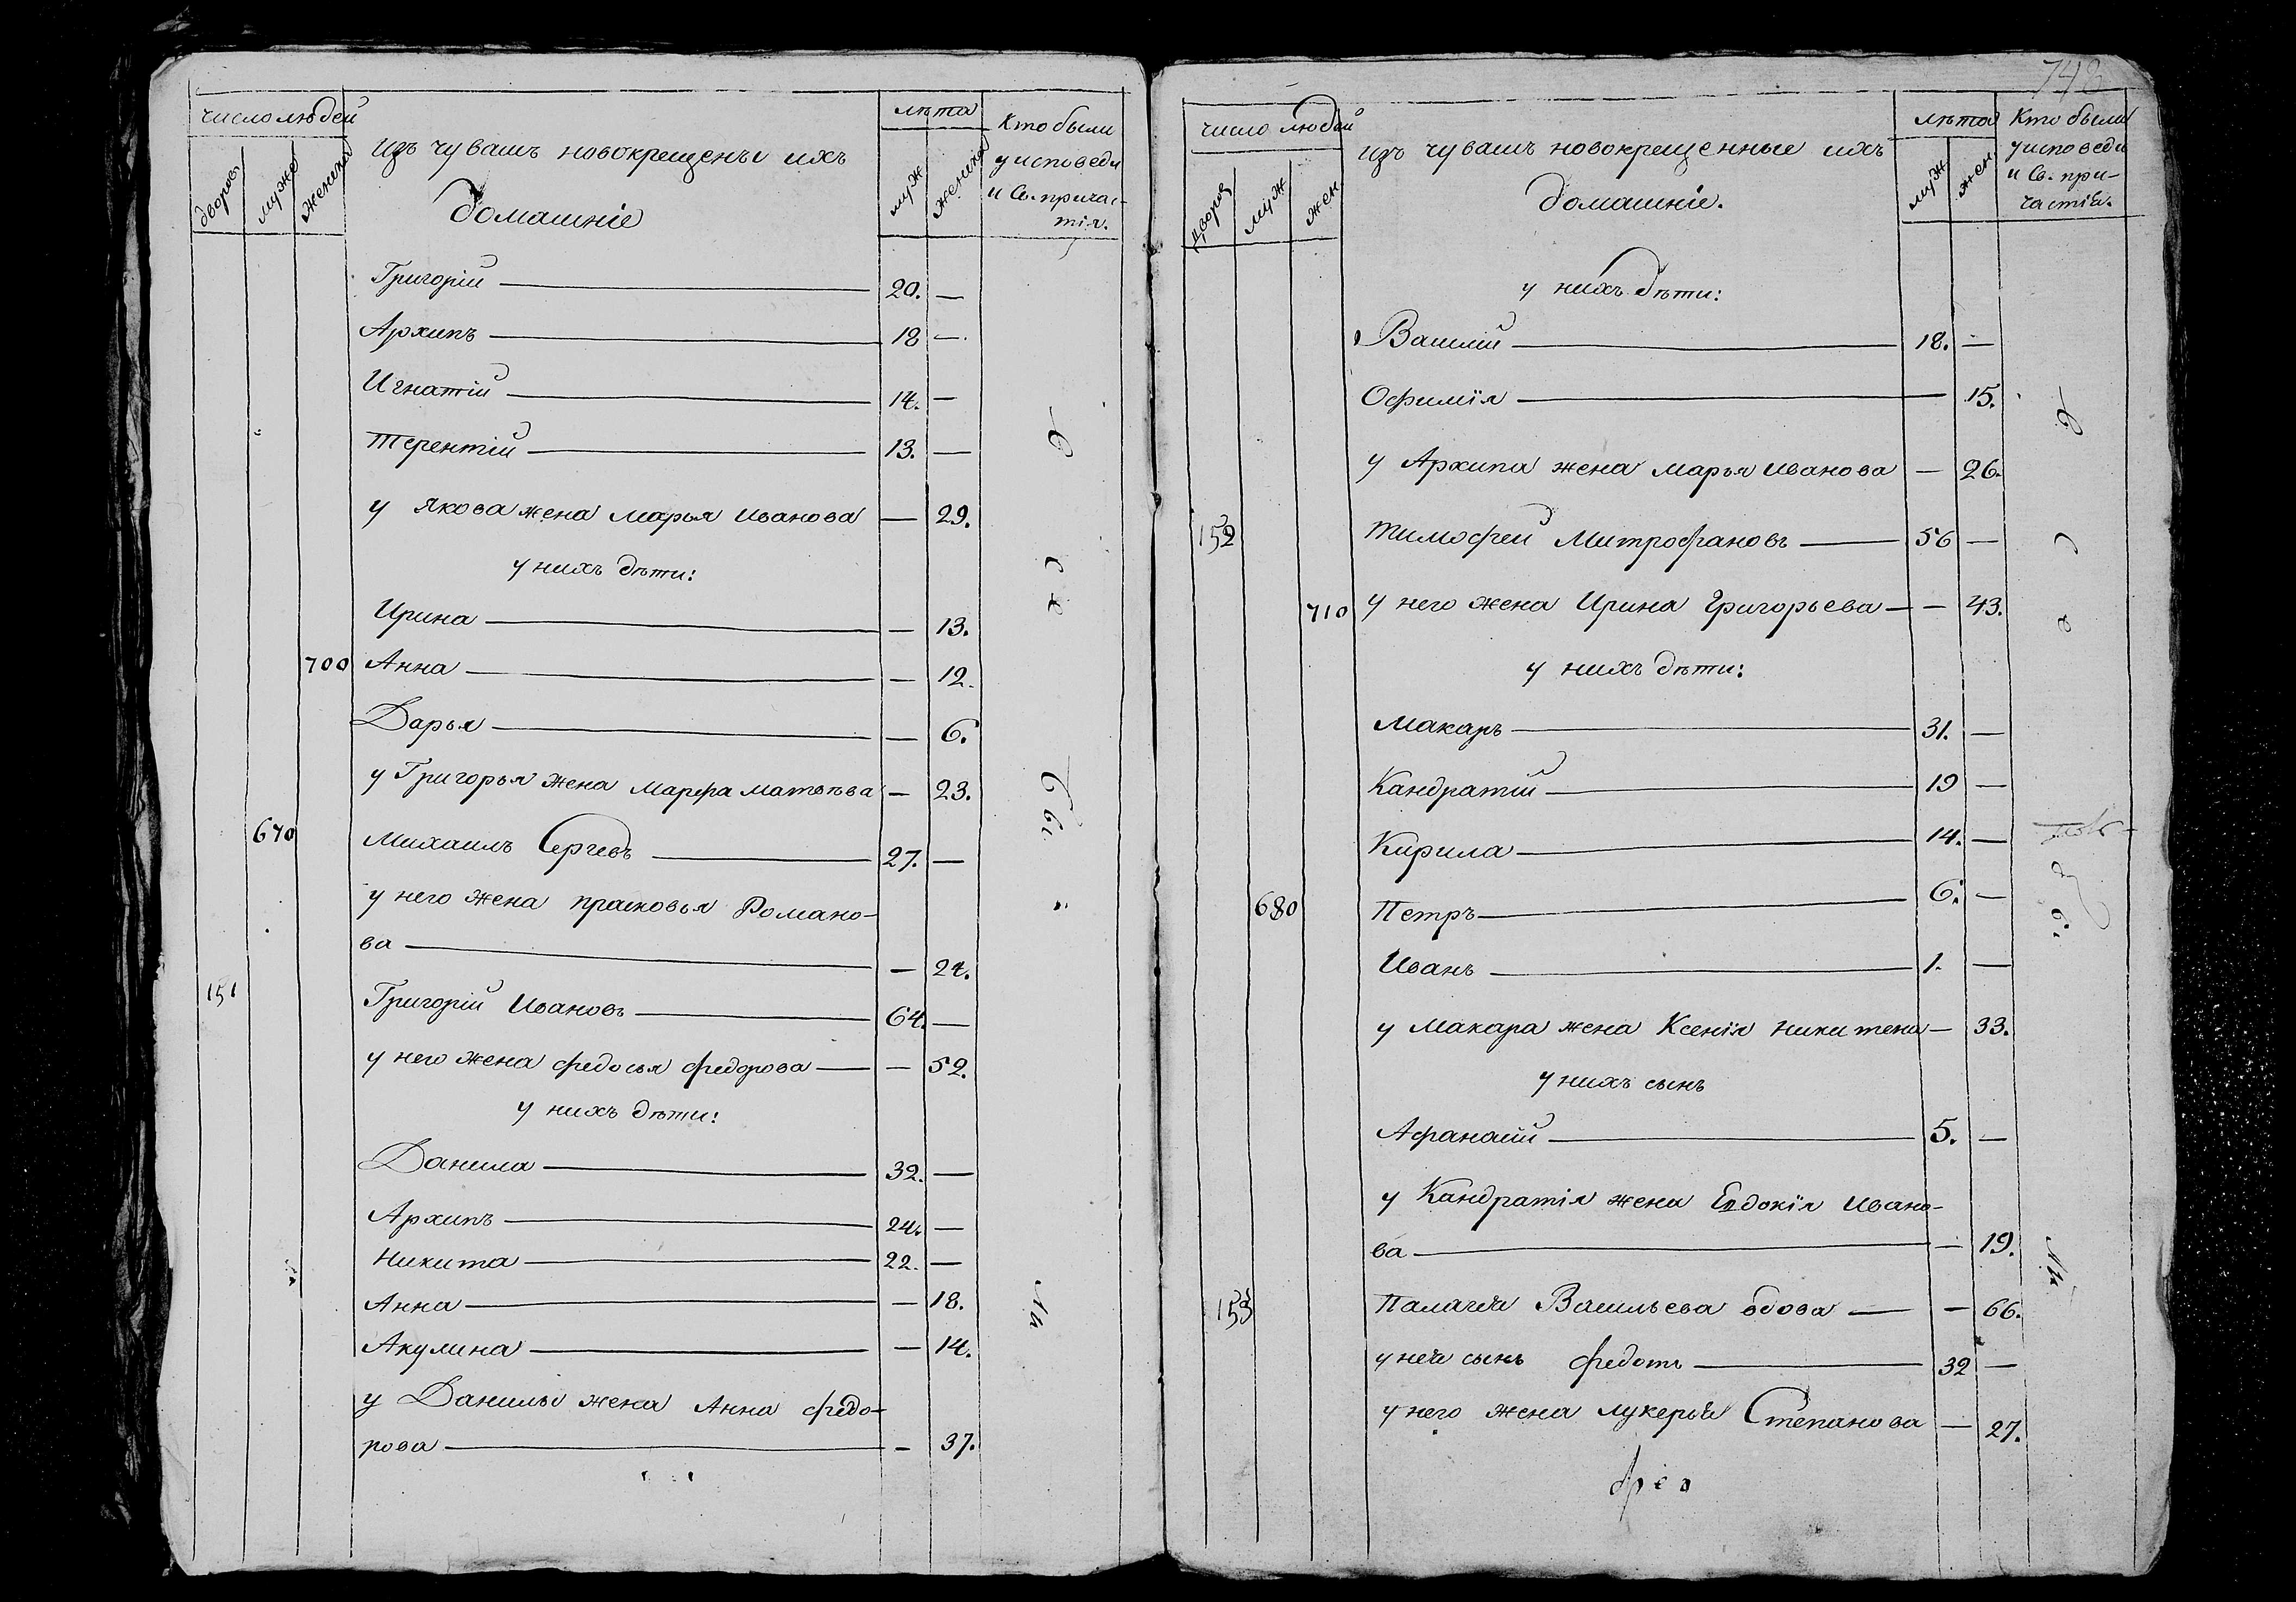 число людей
дворов.
мужс
женска
изъ чувашъ новокрещены ихъ
домашніе
лѣта
муж
женска
Кто были
у исповеди
и Св. причас-
тія.
Григорій — 20. —
Архипъ — 18 —
Игнатій — 14. —
Терентій — 13. —
у Якова жена Марья Иванова — 29.
у нихъ дѣти:
Ирина — 13.
700 Анна — 12.
Дарья — 6.
у Григорья жена Марфа Матвѣва — 23.
670 Михаилъ Сергевъ — 27. —
у него жена прасковья Романо-
ва — 24.
151 Григорій Ивановъ — 64. —
у него жена федосья федорова — 52.
у нихъ дѣти:
Данила — 32. —
Архипъ — 24. —
Никита — 22. —
Анна — 18.
Акулина — 14.
у Данилы жена Анна федо-
рова — 37.
748
число людей
дворов
муж
жен.
изъ чувашъ новокрещенные ихъ
домашніе.
лѣта
муж
жен.
Кто были
у исповеди
и Св. при-
частія.
у нихъ дѣти:
Василій — 18. —
Офимія — 15.
у Архипа жена Марья Иванова — 26.
152 Тимофей Митрофановъ — 56 —
710 у него жена Ирина Григорьева — 43.
у нихъ дѣти:
Макаръ — 31. —
Кандратій — 19 —
Кирила — 14. —
680 Петръ — 6. —
Иванъ — 1. —
у Макара жена Ксенія Никитена — 33.
у нихъ сынъ
Афанасій — 5. —
у Кандратія жена Евдокія Ивано-
ва — 19.
153 Палагея Васильева вдова — 66.
у нея сынъ федотъ — 32 —
у него жена лукерья Степанова — 27.